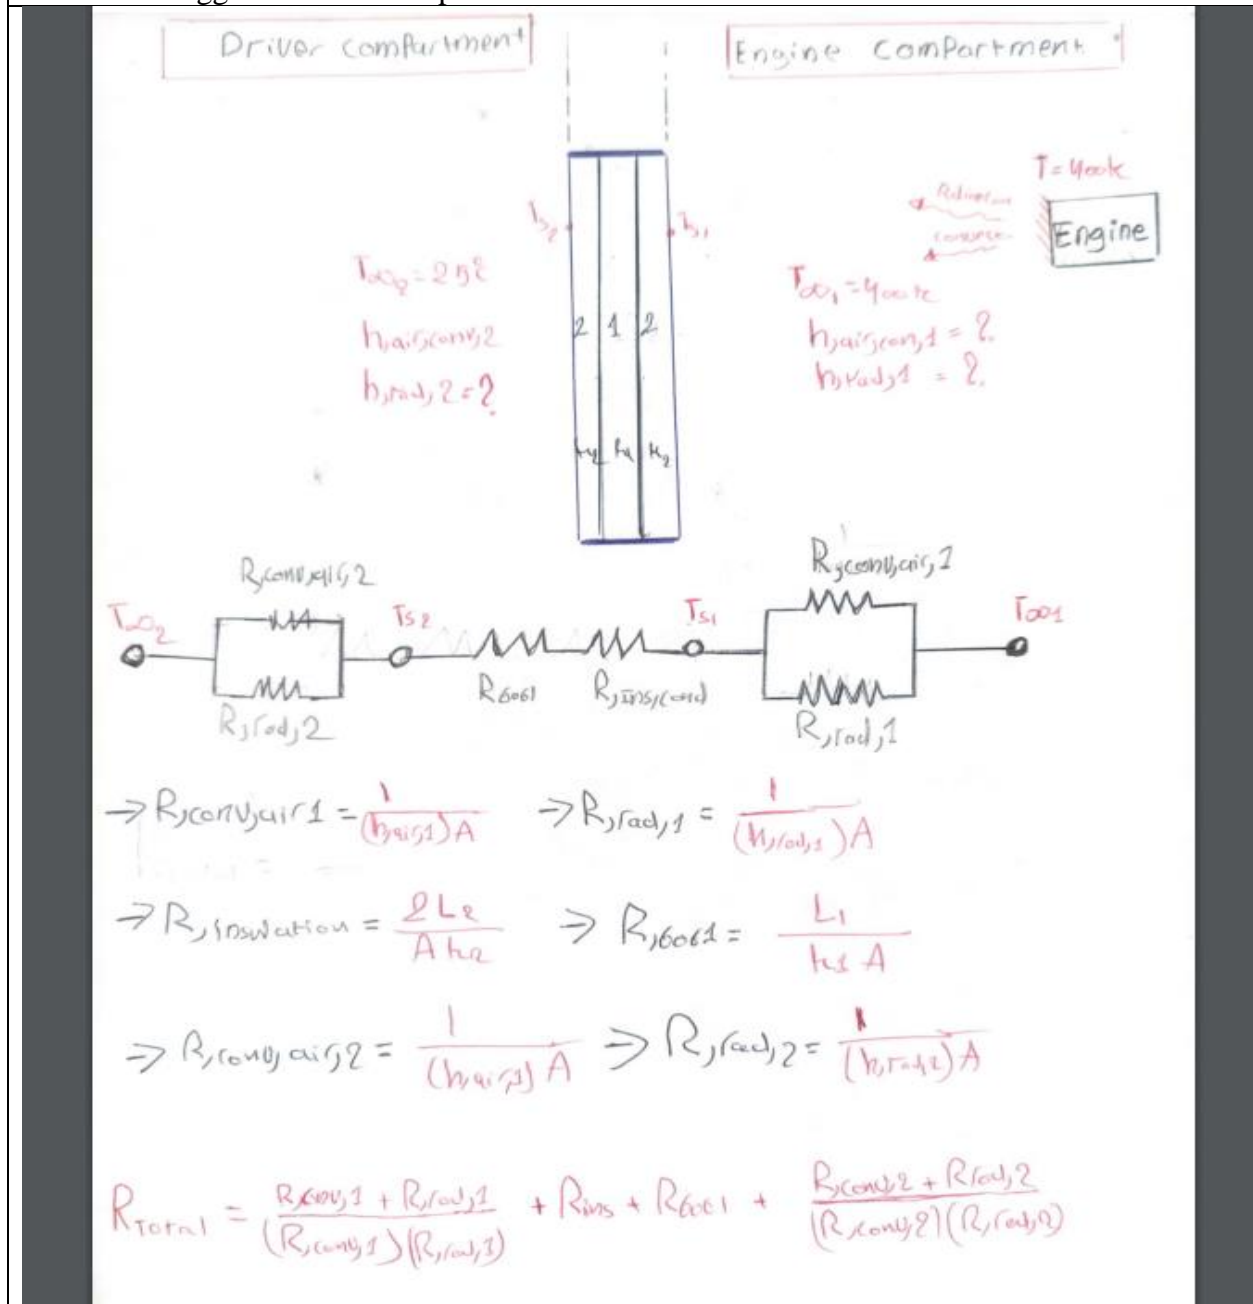 Driver compartment
Engine compartment
T = 400k
Radiation
Engine
Ts2
Ts1
T∞2 = 25
T∞1 = 400k
h,air,conv,2
h,air,con,1 = ?
h,rad,2 = ?
h,rad,1 = ?
2 1 2
k2 k1 k2
R,conv,air,2
R,conv,air,1
T∞2
Ts2
Ts1
T∞1
R6061
R,ins,cond
R,rad,2
R,rad,1
→ R,conv,air1 = 1 / (h,air,1) A → R,rad,1 = 1 / (h,rad,1) A
→ R,insulation = 2L2 / A k2 → R,6061 = L1 / k1 A
→ R,conv,air,2 = 1 / (h,air,1) A → R,rad,2 = 1 / (h,rad,2) A
RTotal = R,conv,1 + R,rad,1 / (R,conv,1)(R,rad,1) + Rins + R6061 + R,conv,2 + R,rad,2 / (R,conv,2)(R,rad,2)